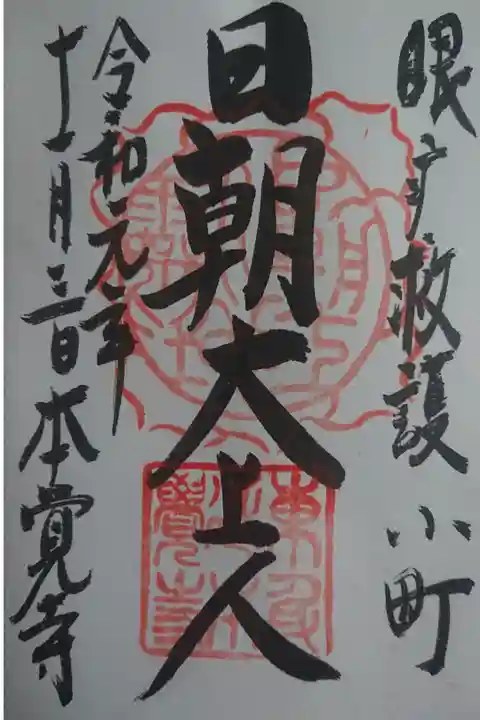 眼病救護 小町
日朝大上人
令和元年
十一月三日 本覺寺